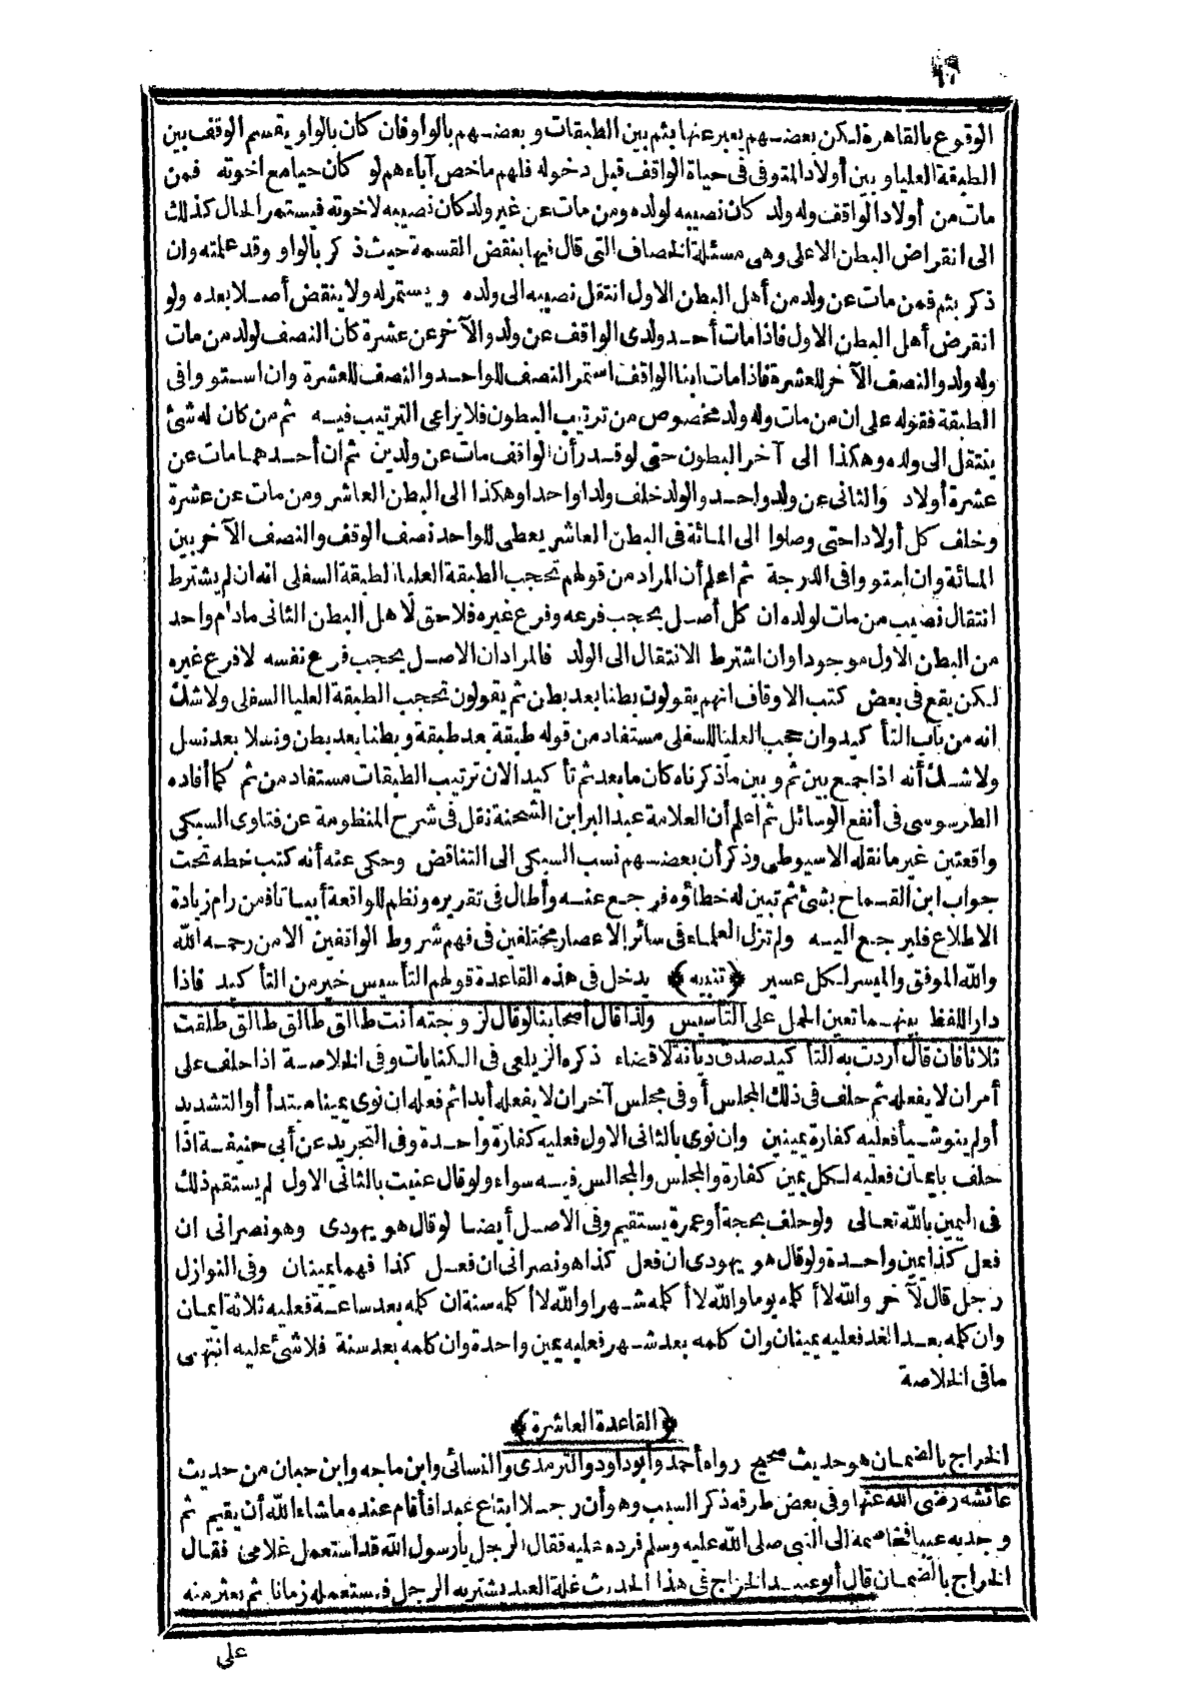 الوقوع بالقاهرة لكن بعضهم يعبر عنها بثم بين الطبقات وبعضهم بالواو فان كان بالواو يقسم الوقف بين
الطبقة العليا وبين أولاد المتوفى فى حياة الواقف قبل دخوله فلهم ماخص آباءهم لو كان حيا مع اخوته فمن
مات من أولاد الواقف وله ولد كان نصيبه لولده ومن مات عن غير ولد كان نصيبه لاخوته فيستمر الحال كذلك
الى انقراض البطن الاعلى وهى مسئلة الخصاف التى قال فيها بنقض القسمة حيث ذكر بالواو وقد علمته وان
ذكر بثم فمن مات عن ولد من أهل البطن الاول انتقل نصيبه الى ولده ويستمر له ولا ينقض أصلا بعده ولو
انقرض أهل البطن الاول فاذا مات أحد ولدى الواقف عن ولد والآخر عن عشرة كان النصف لولد من مات
وله ولد والنصف الآخر للعشرة فاذا مات ابنا الواقف استمر النصف للواحد والنصف للعشرة وان استووا فى
الطبقة فقوله على ان من مات وله ولد مخصوص من ترتيب البطون فلا يراعى الترتيب فيه ثم من كان له شئ
ينتقل الى ولده وهكذا الى آخر البطون حتى لو قدر أن الواقف مات عن ولدين ثم ان أحدهما مات عن
عشرة أولاد والثانى عن ولد واحد والولد خلف ولدا واحدا وهكذا الى البطن العاشر ومن مات عن عشرة
وخلف كل أولادا حتى وصلوا الى المائة فى البطن العاشر يعطى للواحد نصف الوقف والنصف الآخر بين
المائة وان استووا فى الدرجة ثم اعلم أن المراد من قولهم تحجب الطبقة العليا الطبقة السفلى انه ان لم يشترط
انتقال نصيب من مات لولده ان كل أصل يحجب فرعه وفرع غيره فلا حق لاهل البطن الثانى مادام واحد
من البطن الاول موجودا وان اشترط الانتقال الى الولد فالمراد ان الاصل يحجب فرع نفسه لا فرع غيره
لكن يقع فى بعض كتب الاوقاف انهم يقولون بطنا بعد بطن ثم يقولون تحجب الطبقة العليا السفلى ولا شك
انه من باب التأكيد وان حجب العليا للسفلى مستفاد من قوله طبقة بعد طبقة وبطنا بعد بطن ونسلا بعد نسل
ولا شك أنه اذا جمع بين ثم وبين ما ذكرناه كان ما بعد ثم تأكيد الان ترتيب الطبقات مستفاد من ثم كما أفاده
الطرسوسى فى أنفع الوسائل ثم اعلم أن العلامة عبد البر ابن الشحنة نقل فى شرح المنظومة عن فتاوى السبكى
واقعتين غير ما نقله الاسيوطى وذكر أن بعضهم نسب السبكى الى التناقض وحكى عنه أنه كتب خطه تحت
جواب ابن القماح بشئ ثم تبين له خطاؤه فرجع عنه وأطال فى تقريره ونظم للواقعة أبياتا فمن رام زيادة
الاطلاع فليرجع اليه ولم تزل العلماء فى سائر الاعصار مختلفين فى فهم شروط الواقفين الا من رحمه الله
والله الموفق والميسر لكل عسير ﴿تنبيه﴾ يدخل فى هذه القاعدة قولهم التأسيس خير من التأكيد فاذا
دار اللفظ بينهما تعين الحمل على التأسيس ولذا قال أصحابنا لو قال لزوجته أنت طالق طالق طالق طلقت
ثلاثا فان قال أردت به التأكيد صدق ديانة لا قضاء ذكره الزيلعى فى الكنايات وفى الخلاصة اذا حلف على
أمر ان لا يفعله ثم حلف فى ذلك المجلس أو فى مجلس آخر ان لا يفعله أبدا ثم فعله ان نوى يمينا مبتدأ أو التشديد
أو لم ينو شيأ فعليه كفارة يمينين وان نوى بالثانى الاول فعليه كفارة واحدة وفى التجريد عن أبى حنيفة اذا
حلف بايمان فعليه لكل يمين كفارة والمجلس والمجالس فيه سواء ولو قال عنيت بالثانى الاول لم يستقم ذلك
فى اليمين بالله تعالى ولو حلف بحجة أو عمرة يستقيم وفى الاصل أيضا لو قال هو يهودى وهو نصرانى ان
فعل كذا يمين واحدة ولو قال هو يهودى ان فعل كذا هو نصرانى ان فعل كذا فهما يمينان وفى النوازل
رجل قال لآخر والله لا أكله يوما والله لا أكله شهرا والله لا أكله سنة ان كله بعد ساعة فعليه ثلاثة ايمان
وان كله بعد الغد فعليه يمينان وان كلمه بعد شهر فعليه يمين واحدة وان كلمه بعد سنة فلا شئ عليه انتهى
مافى الخلاصة
﴿القاعدة العاشرة﴾
الخراج بالضمان هو حديث صحيح رواه أحمد وأبو داود والترمذى والنسائى وابن ماجه وابن حبان من حديث
عائشة رضى الله عنها وفى بعض طرقه ذكر السبب وهو أن رجلا ابتاع عبدا فأقام عنده ماشاء الله أن يقيم ثم
وجد به عيبا فخاصمه الى النبى صلى الله عليه وسلم فرده عليه فقال الرجل يا رسول الله قد استعمل غلامى فقال
الخراج بالضمان قال أبو عبيد الخراج فى هذا الحديث غلة العبد يشتريه الرجل فيستعمله زمانا ثم يعثر منه
على